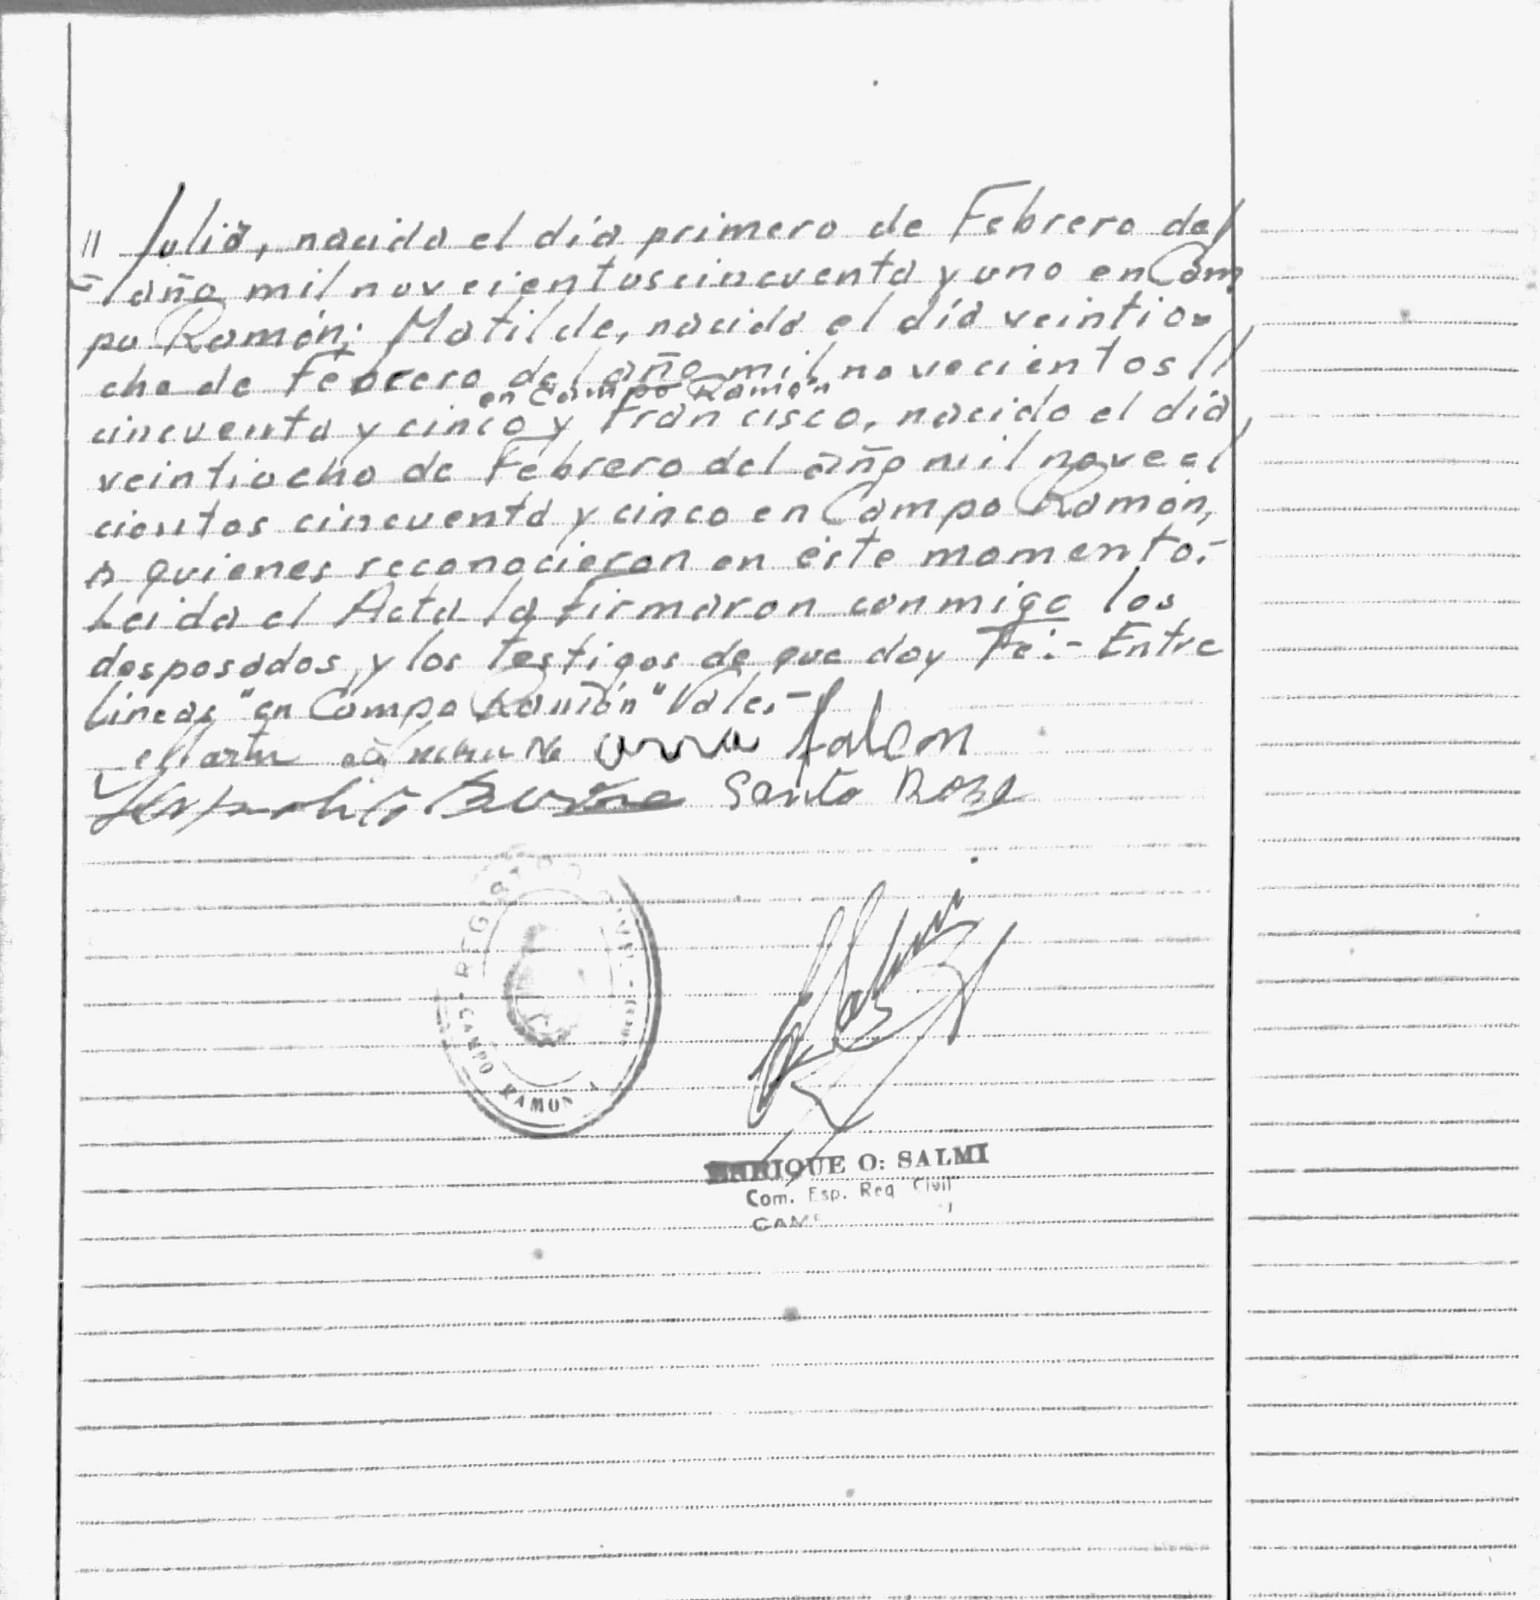 // Julia, nacida el día primero de Febrero del
= año mil novecientos cincuenta y uno en Cam
po Ramón; Matilde, nacida el día veintio=
cho de Febrero del año mil novecientos //
en Campo Ramón
cincuenta y cinco y Francisco, nacido el día,
veintiocho de Febrero del año mil nove el
cientos cincuenta y cinco en Campo Ramón,
a quienes reconocieron en éste momento.-
Leida el Acta la firmaron conmigo los
desposados, y los testigos de que doy Fe:- Entre
lineas "en Campo Ramón" Vale.-
Santo Rosa
REGISTRO CIVIL
CAMPO RAMON
ENRIQUE O: SALMI
Com. Esp. Reg Civil